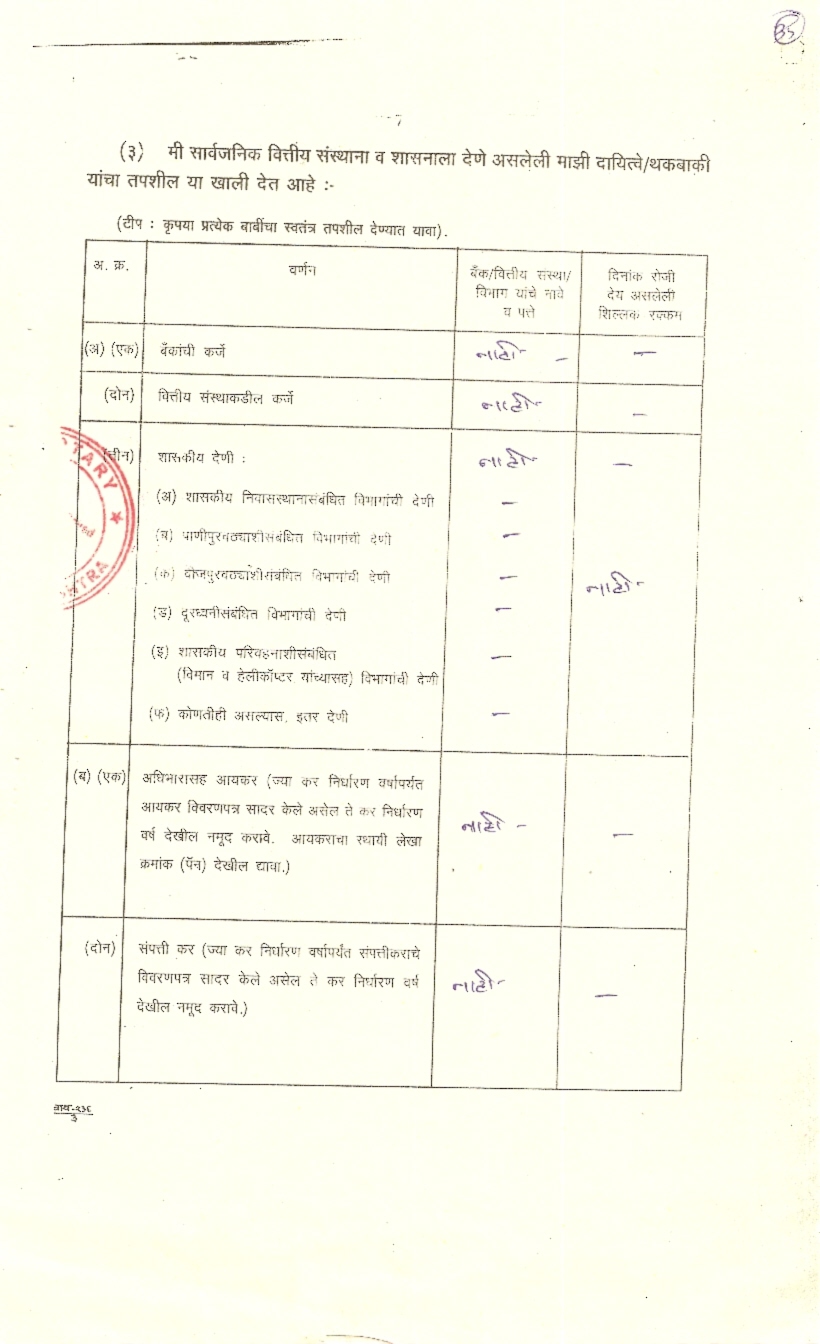 35
7
(३) मी सार्वजनिक वित्तीय संस्थाना व शासनाला देणे असलेली माझी दायित्वे/थकबाकी
यांचा तपशील या खाली देत आहे :-
(टीप : कृपया प्रत्येक बाबींचा स्वतंत्र तपशील देण्यात यावा).
अ. क्र. वर्णन बँक/वित्तीय संस्था/ दिनांक रोजी
विभाग यांचे नावे देय असलेली
व पत्ते शिल्लक रक्कम
(अ) (एक) बँकांची कर्जे नाही - —
(दोन) वित्तीय संस्थाकडील कर्जे नाही- —
(तीन) शासकीय देणी : नाही- —
(अ) शासकीय निवासस्थानासंबंधित विभागांची देणी —
(ब) पाणीपुरवठ्याशीसंबंधित विभागांची देणी —
(क) वीजपुरवठ्याशीसंबंधित विभागांची देणी — नाही-
(ड) दूरध्वनीसंबंधित विभागांची देणी —
(इ) शासकीय परिवहनाशीसंबंधित —
(विमान व हेलीकॉप्टर यांच्यासह) विभागांची देणी
(फ) कोणतीही असल्यास, इतर देणी —
(ब) (एक) अधिभारासह आयकर (ज्या कर निर्धारण वर्षापर्यंत
आयकर विवरणपत्र सादर केले असेल ते कर निर्धारण
वर्ष देखील नमूद करावे. आयकराचा स्थायी लेखा नाही - —
क्रमांक (पॅन) देखील द्यावा.)
(दोन) संपत्ती कर (ज्या कर निर्धारण वर्षापर्यंत संपत्तीकराचे
विवरणपत्र सादर केले असेल ते कर निर्धारण वर्ष नाही- —
देखील नमूद करावे.)
TARY ★
HTRA
३